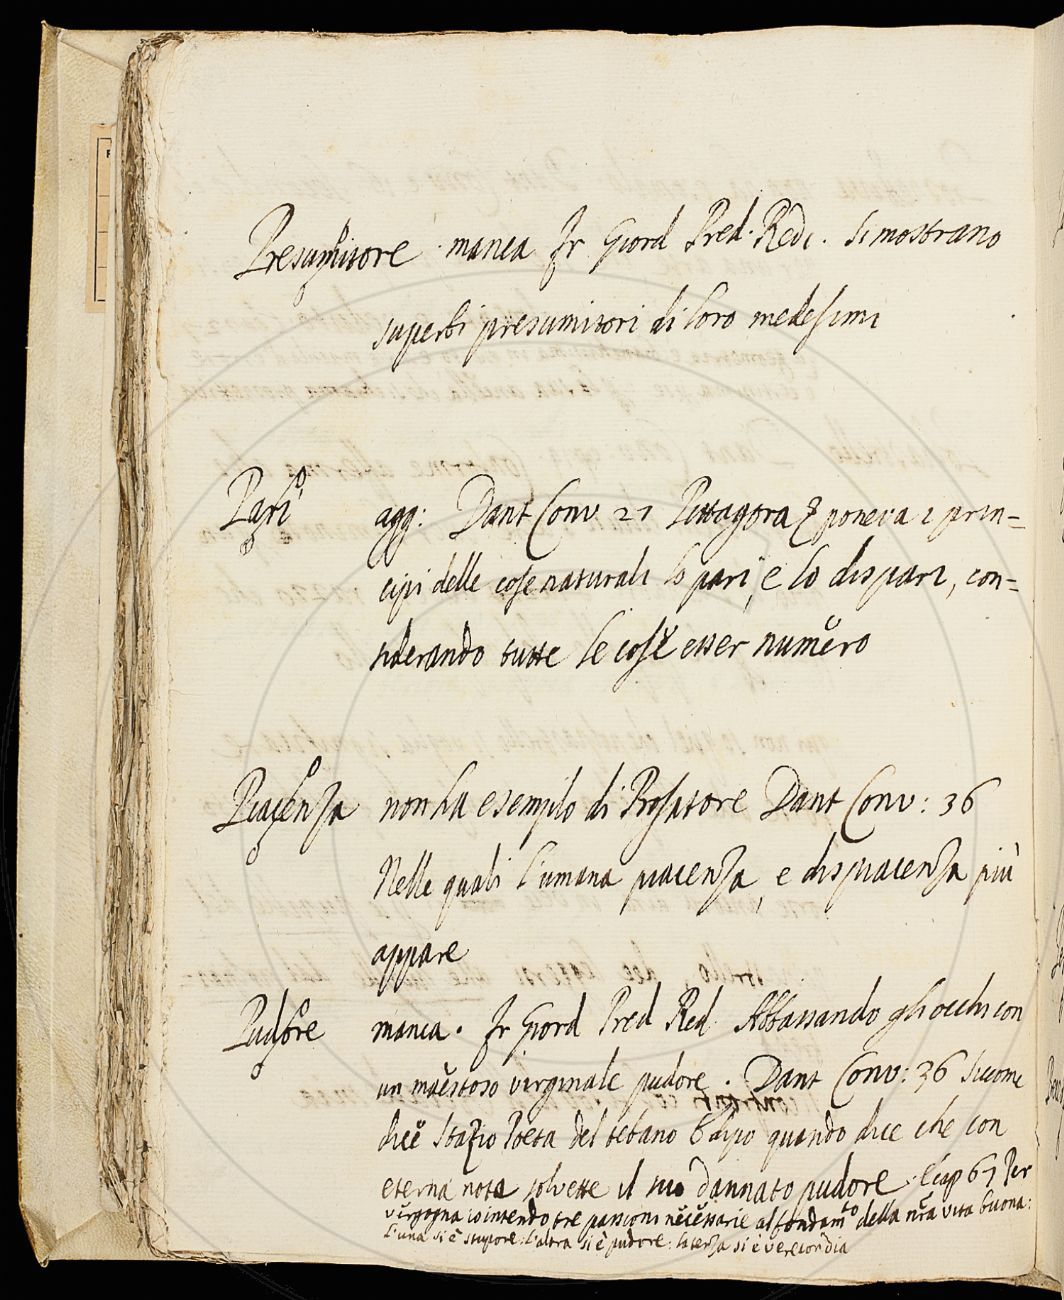 Presumitore manca Fr Giord Pred. Red. Si mostrano
superbi presumitori di loro medesimi
Pari agg: Dant Conv 21 Pittagora poneva i prin=
cipi delle cose naturali lo pari, e lo dispari, con=
siderando tutte le cose esser numero
Piacenza non ha esemplo di Prosatore Dant Conv: 36
Nelle quali l'umana piacenza, e dispiacenza più
appare
Pudore manca. Fr Giord Pred Red Abbassando gli occhi con
un maestoso virginale pudore. Dant Conv: 36 Siccome
dice Stazio Poeta del tebano Edipo quando dice che con
eterna nota solvette il suo dannato pudore. E cap 67 Per
vergogna io intendo tre passioni necessarie al fondamto della nra vita buona:
l'una si è stupore: l'altra si è pudore: la terza si è verecondia